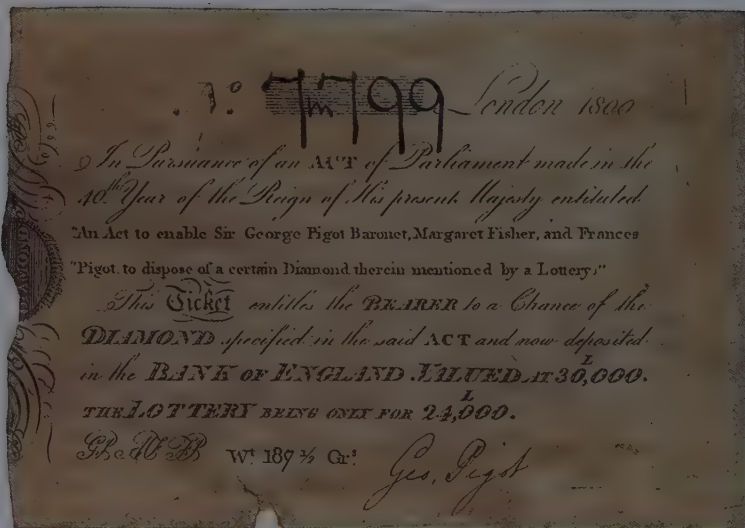 No. 7m799 London 1800
In Pursuance of an ACT of Parliament made in the
40th Year of the Reign of His present Majesty entituled
"An Act to enable Sir George Pigot Baronet, Margaret Fisher, and Frances
"Pigot, to dispose of a certain Diamond therein mentioned by a Lottery,"
This Ticket entitles the BEARER to a Chance of the
DIAMOND specified in the said ACT and now deposited
in the BANK OF ENGLAND VALUED AT 30,000.L
THE LOTTERY BEING ONLY FOR 24,000.L
Wt 187 ½ Grs
Geo, Pigot